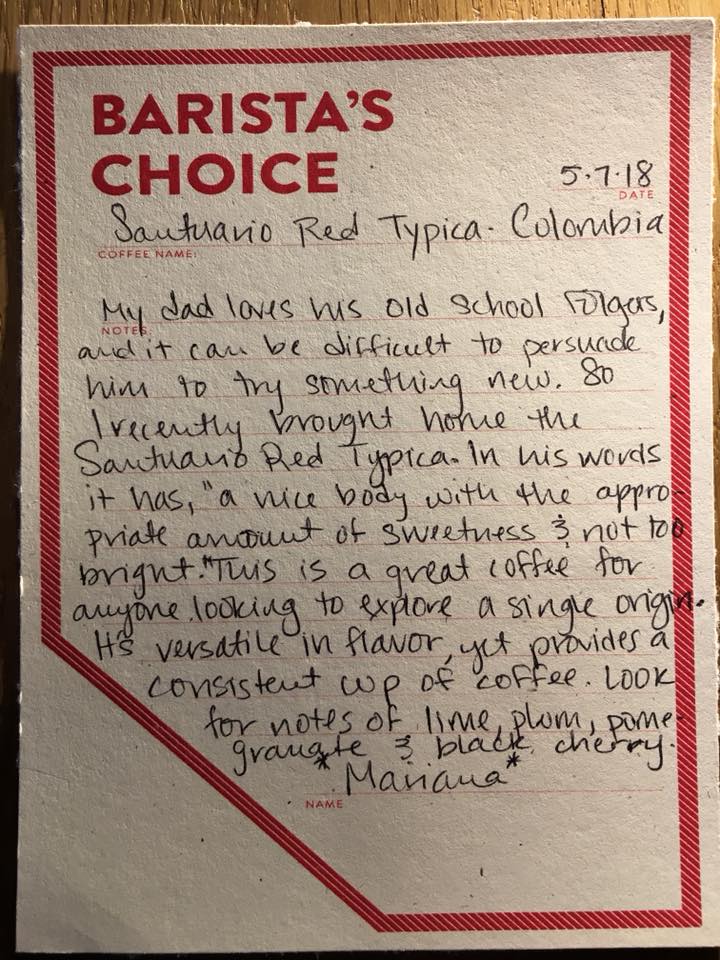 BARISTA'S
CHOICE
5.7.18
DATE
Santuario Red Typica. Colombia
COFFEE NAME:
My dad loves his old school Folgers,
NOTES:
and it can be difficult to persuade
him to try something new. So
I recently brought home the
Santuario Red Typica. In his words
it has, "a nice body with the appro-
priate amount of sweetness & not too
bright." This is a great coffee for
anyone looking to explore a single origin.
It's versatile in flavor, yet provides a
consistent cup of coffee. Look
for notes of lime, plum, pome-
granate & black cherry.
*Mariana*
NAME